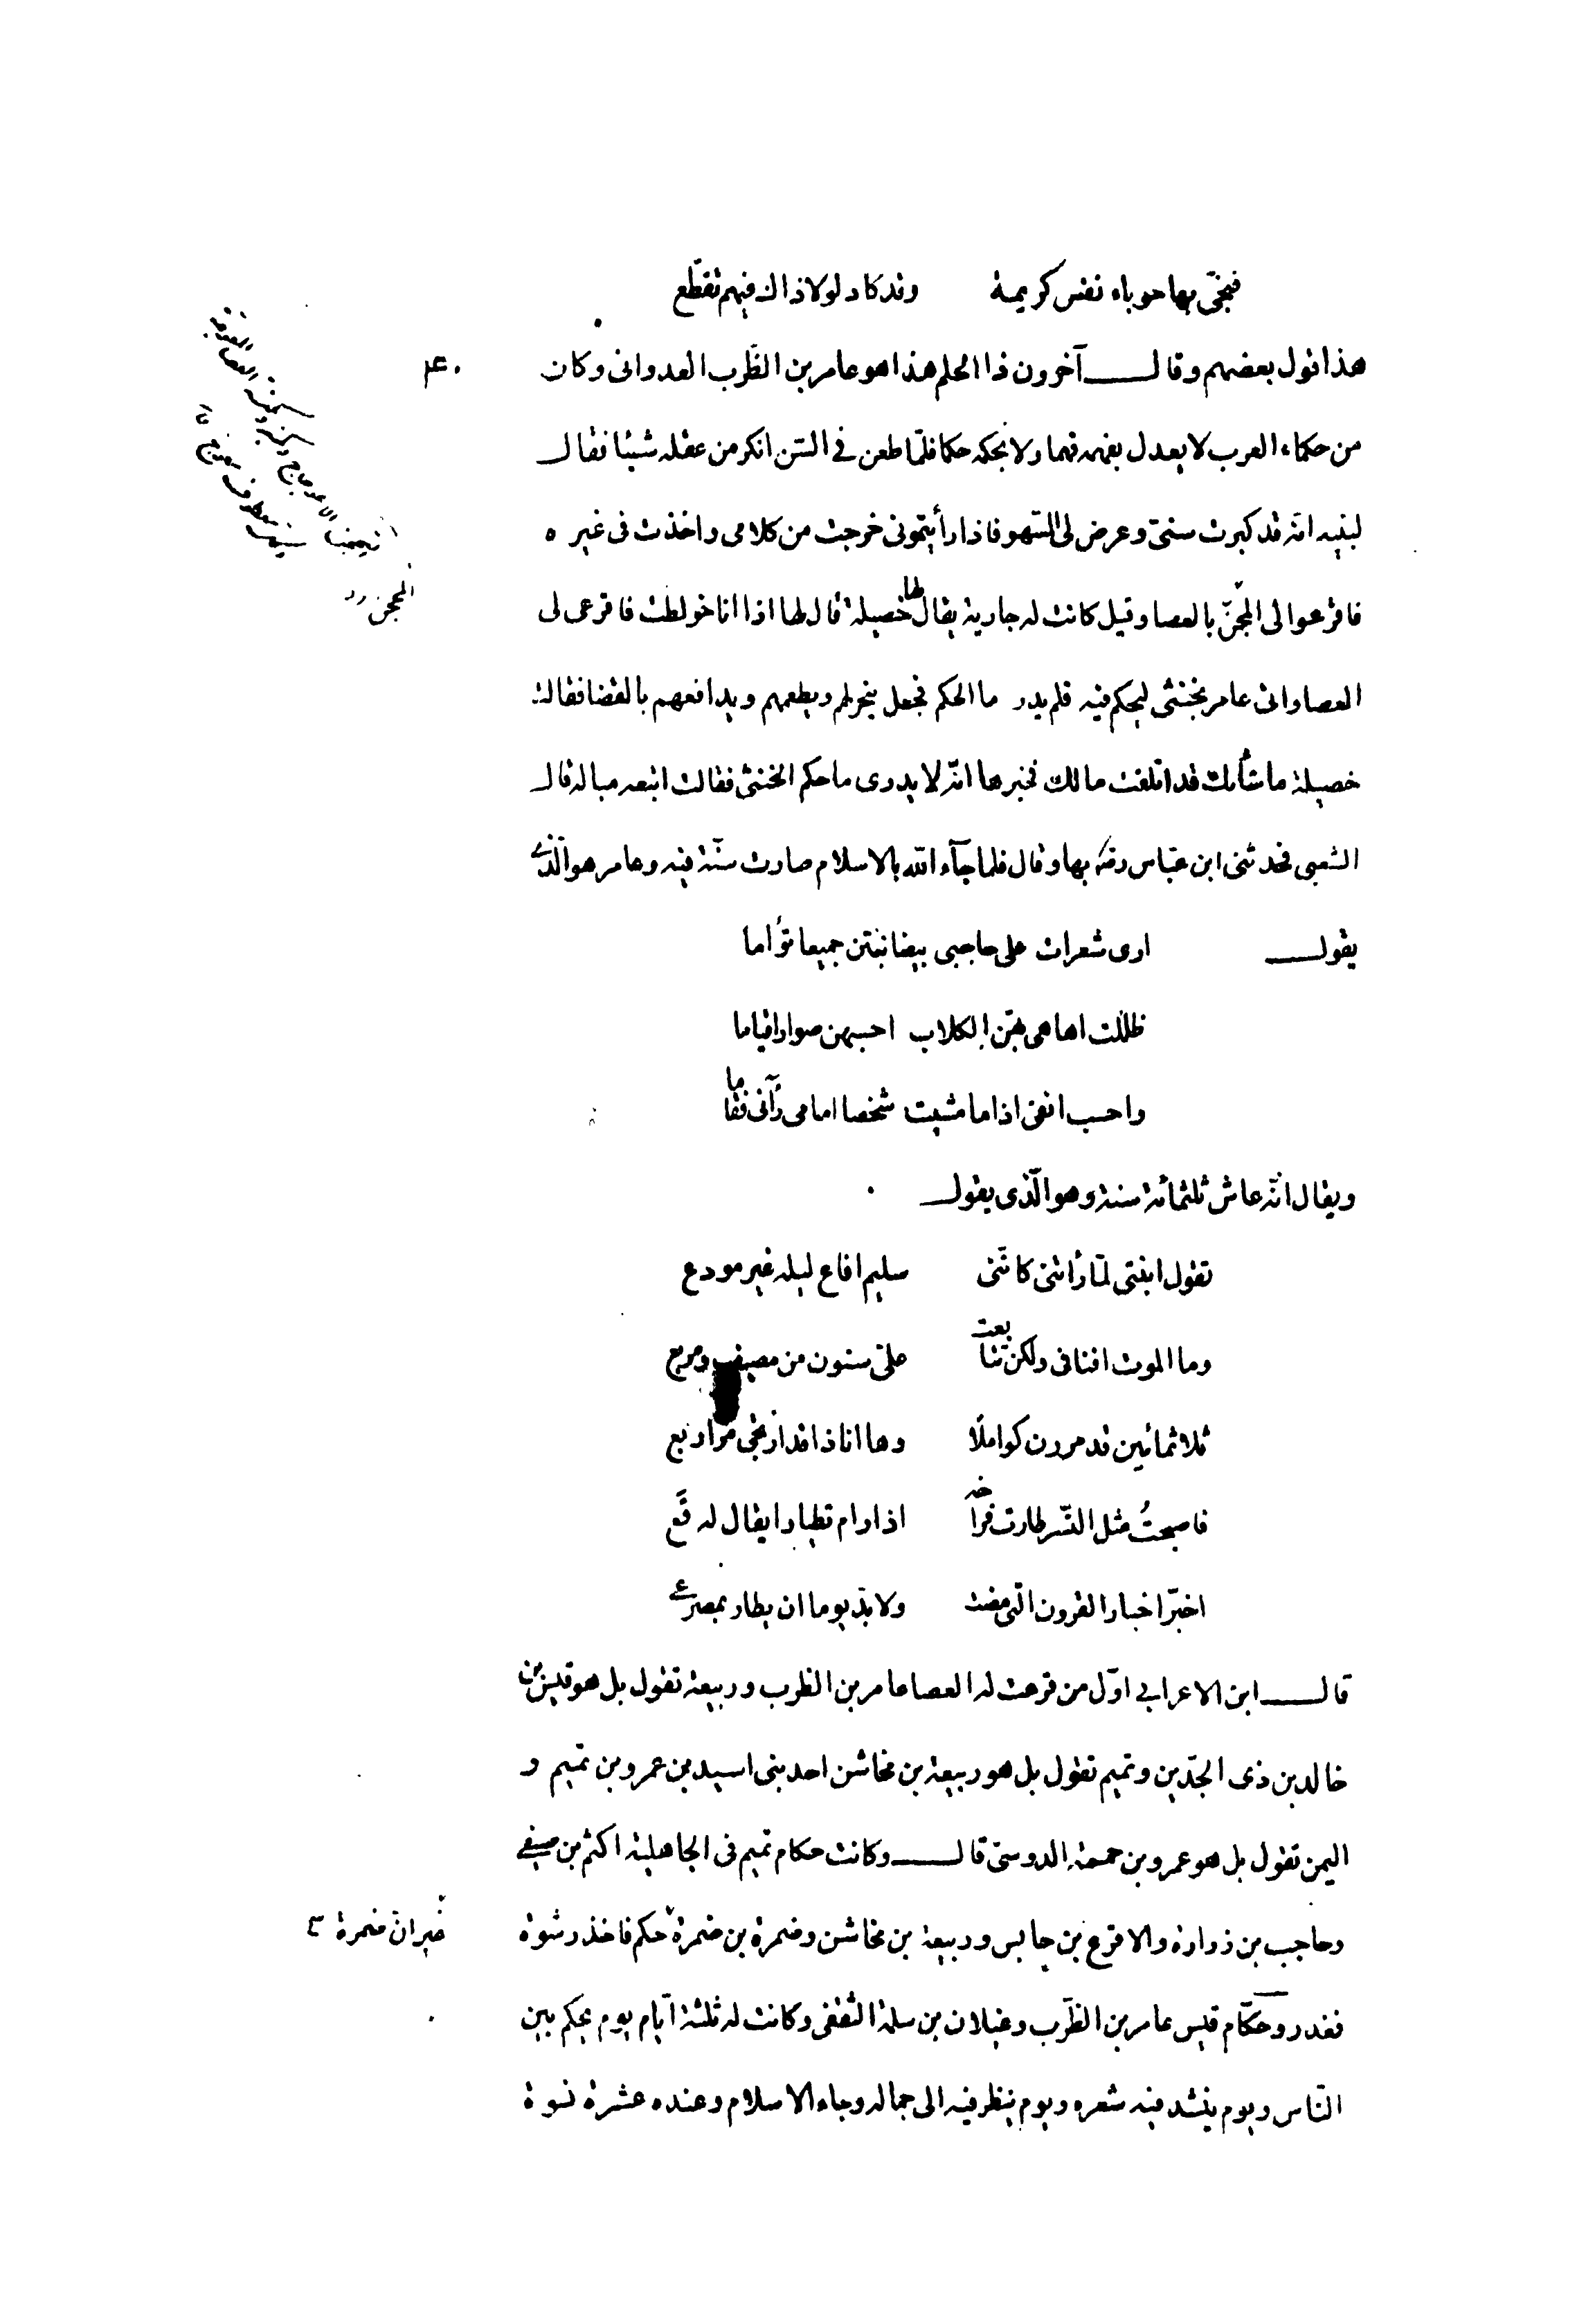 فنجّى بها حوباء نفس كريمة وقد كاد لولا ذاك فيهم تقطّع
هذا قول بعضهم وقال آخرون ذا الحلم هذا هو عامر بن الظّرب العدوانى وكان
من حكماء العرب لا يعدل بفهمه فهما ولا بحكمه حكما فلمّا طعن فى السّن انكر من عقله شيئا فقال
لبنيه انّه قد كبرت سنىّ وعرض لى السّهو فاذا رأيتمونى خرجت من كلامى واخذت فى غيره
فاقرعوا لى المجنّ بالعصا وقيل كانت له جارية يقال لها خصيلة قال لها اذا انا خولطت فاقرعى لى
العصا واتى عامر بخنثى ليحكم فيه فلم يدر ما الحكم فجعل ينحر لهم ويطعمهم ويدافعهم بالقضا فقالت
خصيلة ما شأنك قد اتلفت مالك فخبرها انّه لا يدرى ما حكم الخنثى فقالت اتبعه مباله قال
الشعبى فحدثنى ابن عبّاس رضه بها وقال فلما جآء الله بالاسلام صارت سنّة فيه وعامر هو الّذى
يقول ارى شعرات على حاجبى بيضا نبتن جميعا تؤاما
ظللت اهاهى بهن الكلاب احسبهن صوارا قياما
واحسب انفى اذا ما مشيت شخصا امامى رآنى فقاما
ويقال انّه عاش ثلثمائة سنة وهو الّذى يقول
تقول ابنتى لمّا رأتنى كاننّى سليم افاع ليله غير مودع
وما الموت افنانى ولكن تتابعت علىّ سنون من مصيف ومربع
ثلاث مائين قد مررن كواملًا وها انا ذا قد ارتجى مرّ اربع
فاصبحتُ مثل النّسر طارت فراخه اذا رام تطيارا يقال له قَع
اخبّر اخبار القرون الّتى مضت ولا بدّ يوما ان يطار بمصرعى
قال ابن الاعرابى اوّل من قرعت له العصا عامر بن الظرب وربيعة تقول بل هو قيس بن
خالد بن ذى الجدّين وتميم تقول بل هو ربيعة بن مخاشن احد بنى اسيد بن عمرو بن تميم و
اليمن تقول بل هو عمرو بن حممة الدوسىّ قال وكانت حكام تميم فى الجاهلية اكثم بن صيفى
وحاجب بن زرارة والاقرع بن حابس وربيعة بن مخاشن وضمرة بن ضمرة حكم فاخذ رشوة
غير انّ ضمرة
فغدر وحكّام قيس عامر بن الظّرب وغيلان بن سلمة الثقفى وكانت له ثلثة ايّام يوم يحكم بين
النّاس ويوم ينشد فيه شعره ويوم ينظر فيه الى جماله وجاء الاسلام وعنده عشرة نسوة